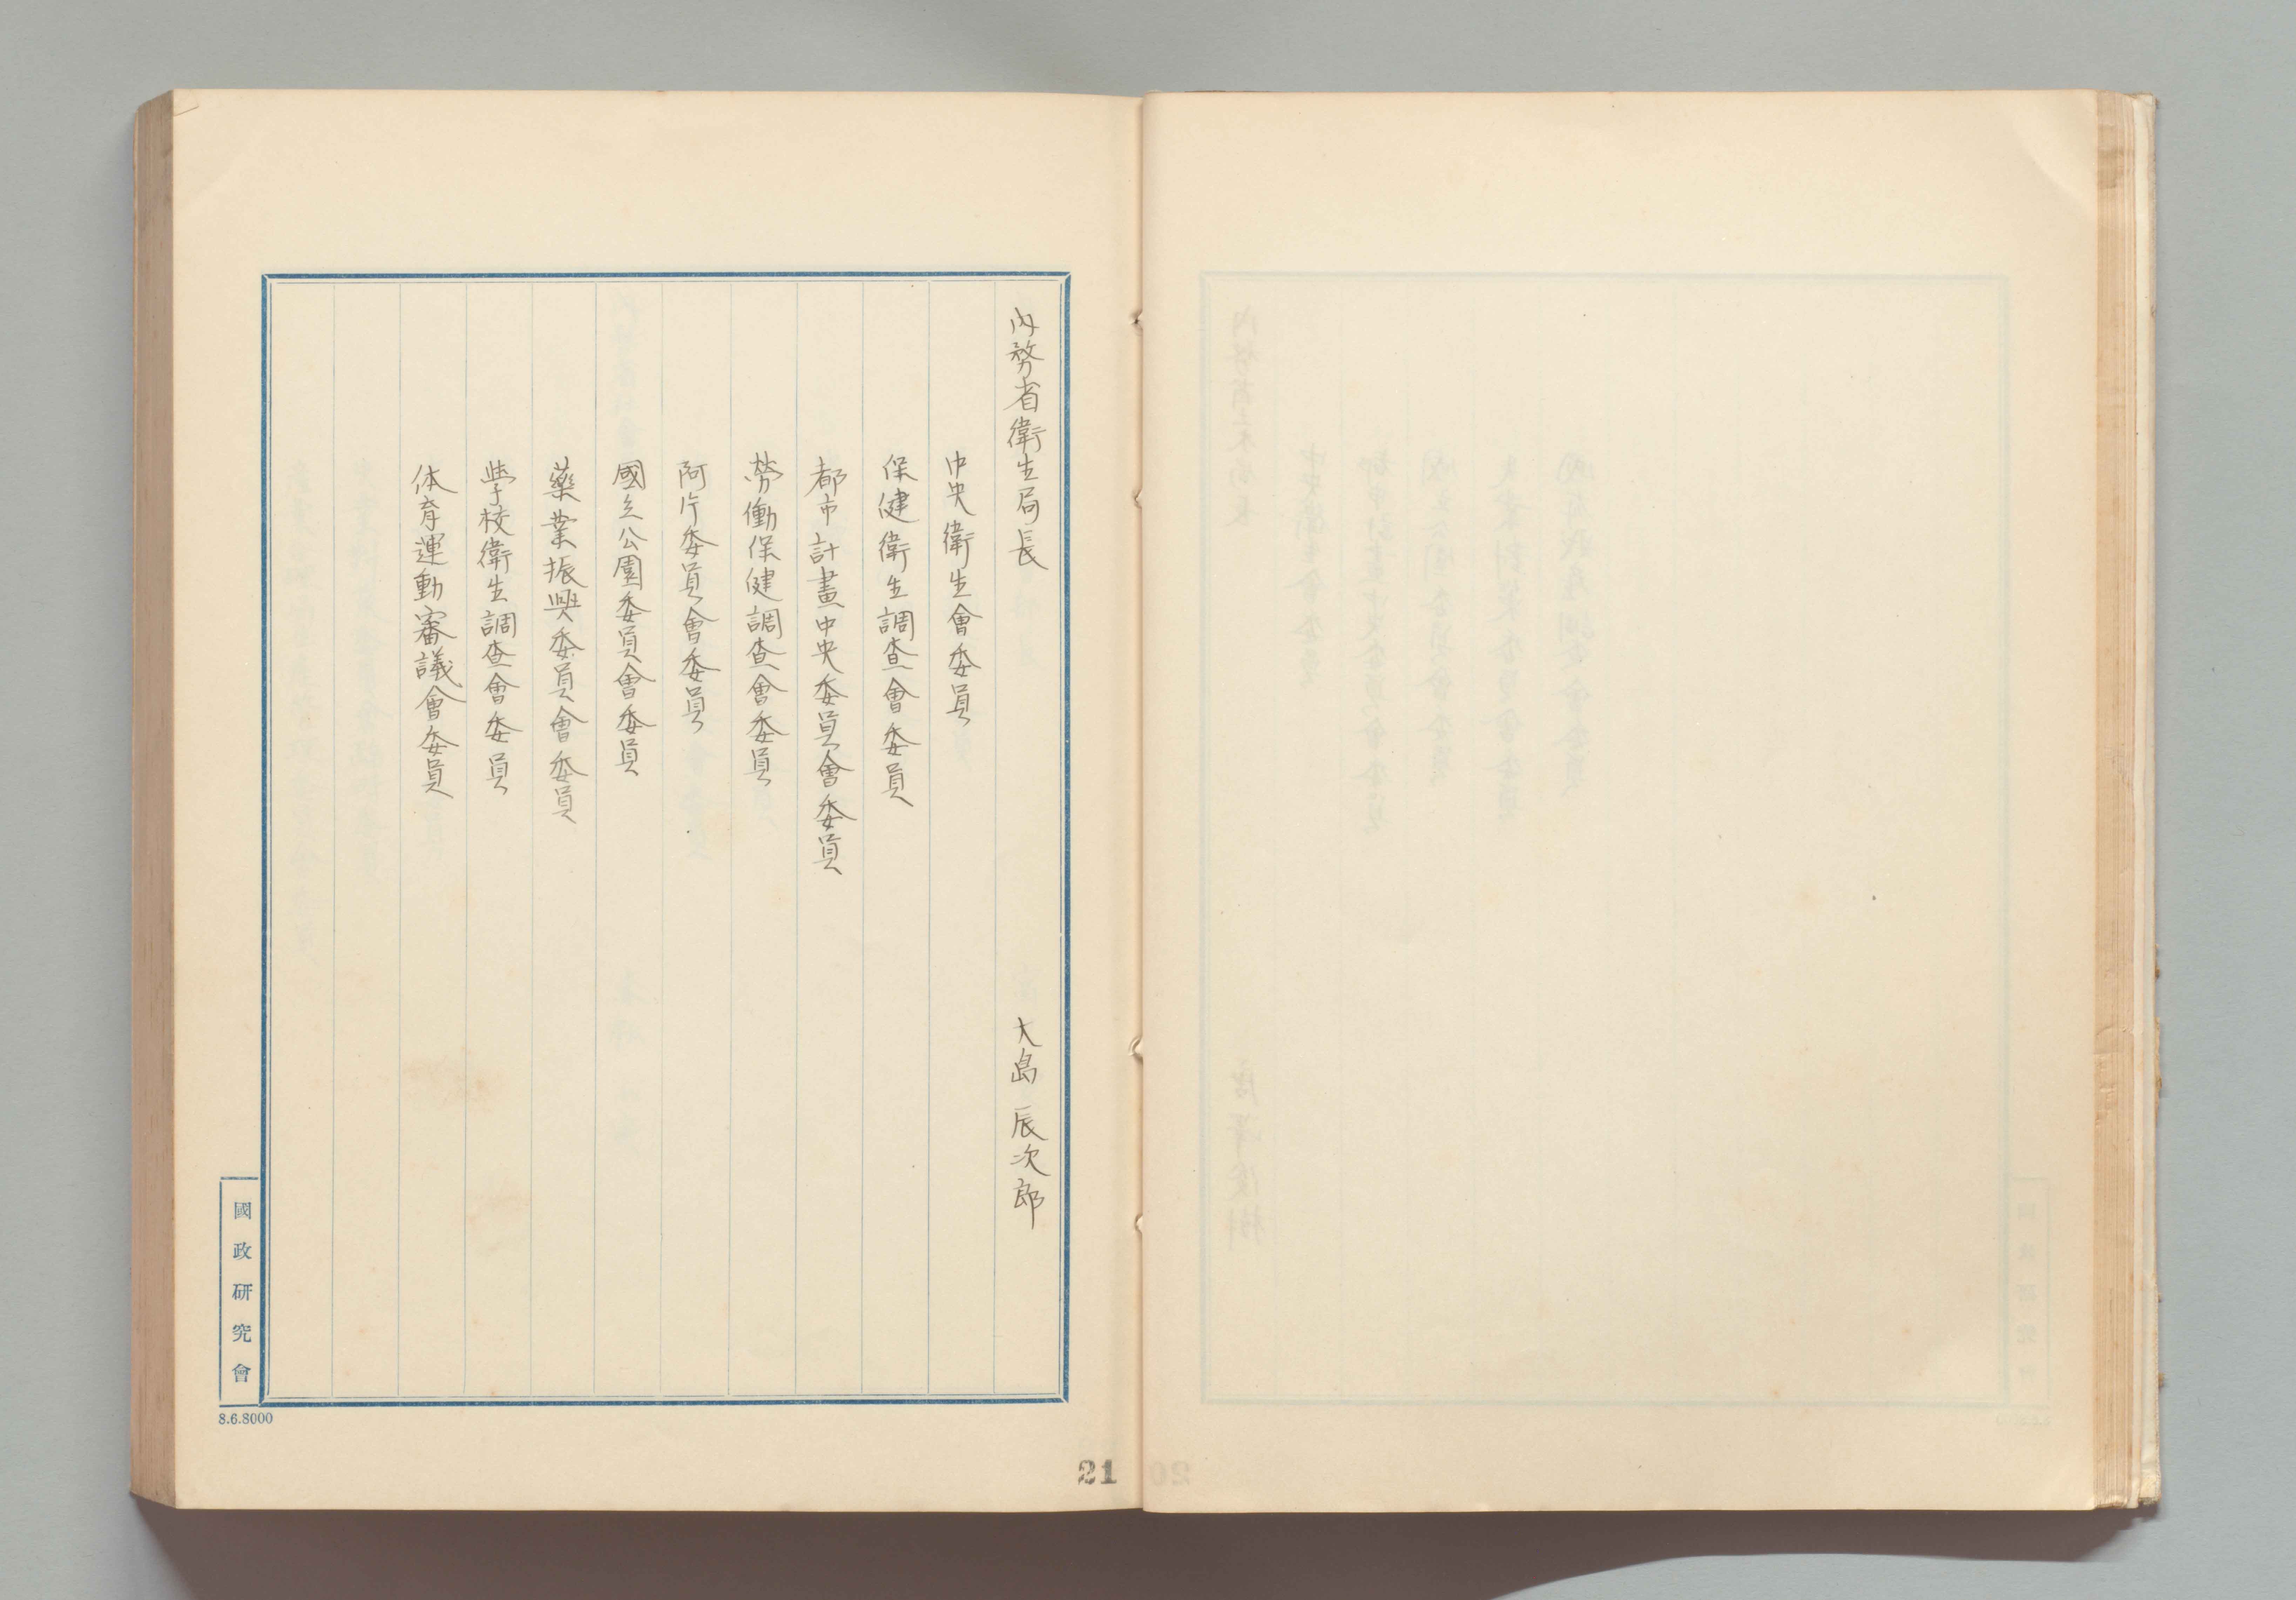 內務省衛生局長　大島 辰次郎
中央衛生會委員
保健衛生調查會委員
都市計畫中央委員會委員
勞働保健調查會委員
阿片委員會委員
國立公園委員會委員
藥業振興委員會委員
學校衛生調查會委員
体育運動審議會委員
國政研究會
8.6.8000
21